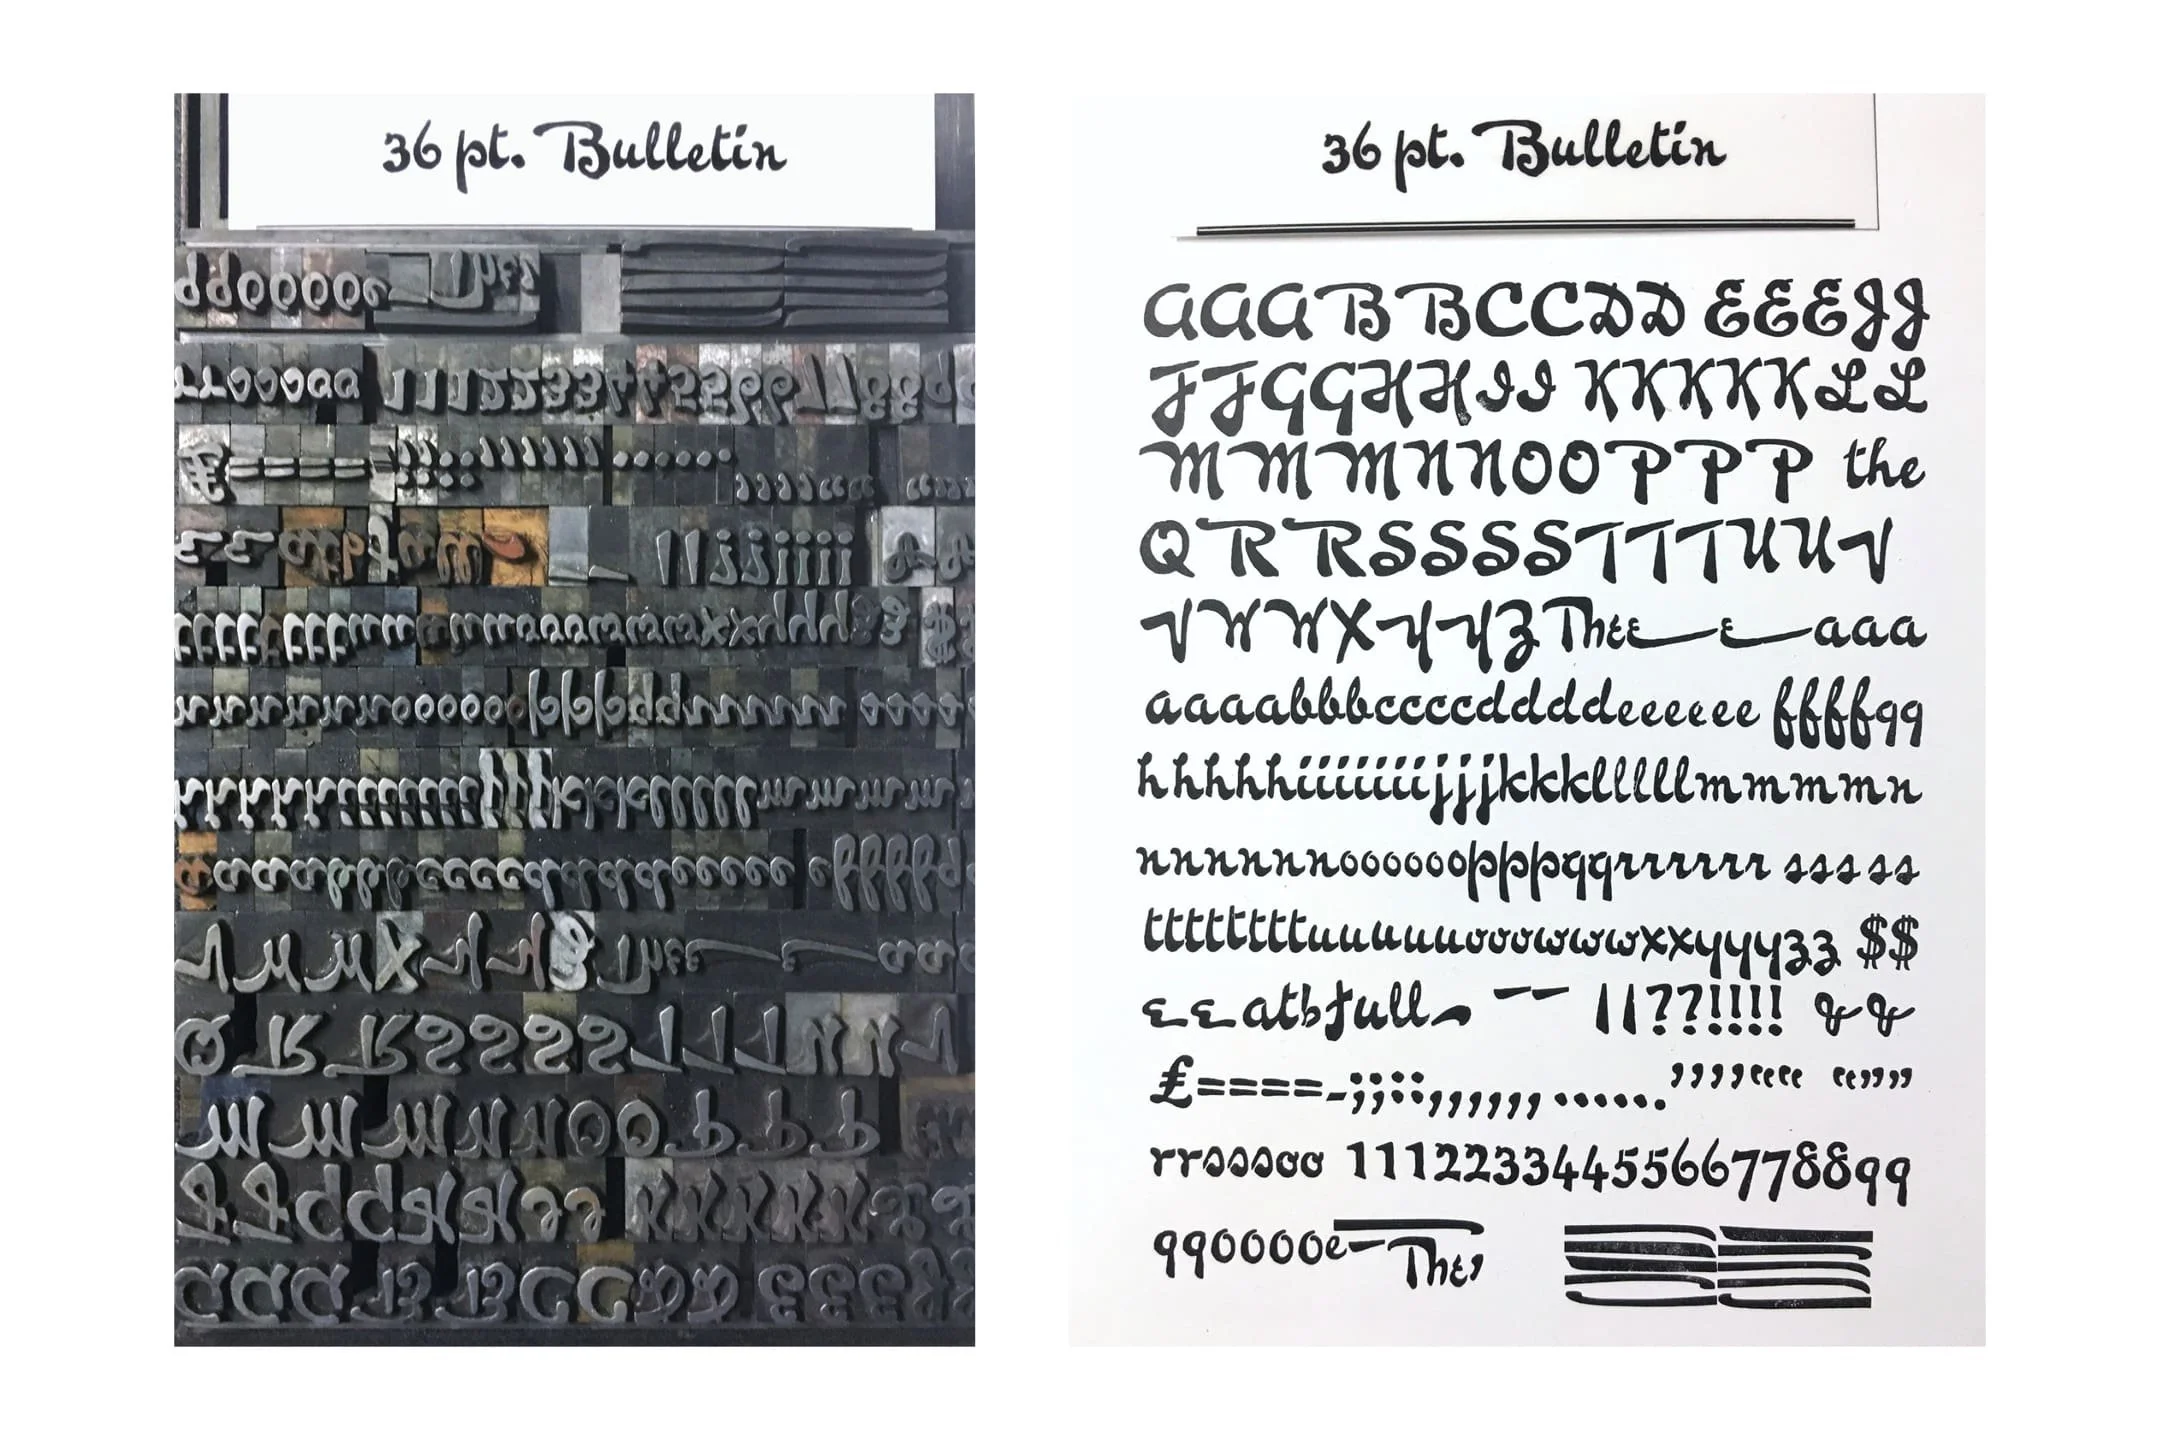 36 pt. Bulletin
36 pt. Bulletin
AAABBCCDD EEEJJ
FFGGHHII KKKKKLL
MMMNNOOPPP the
QRRSSSSTTTUUV
VWWXYYZThεε ε aaa
aaaabbbccccddddeeeeee ffffgg
hhhhhiiiiiiijjjkkklllllmmmmn
nnnnnnoooooopppqqrrrrrr sssss
ttttttttuuuuuuvvvwwwxxyyyzz $$
εεatbfull ||??!!!! &&
£====-;;::,,,,,,,......’’’’‘‘‘‘ “”””
rrsssoo 1112233445566778899
990000e Thε,